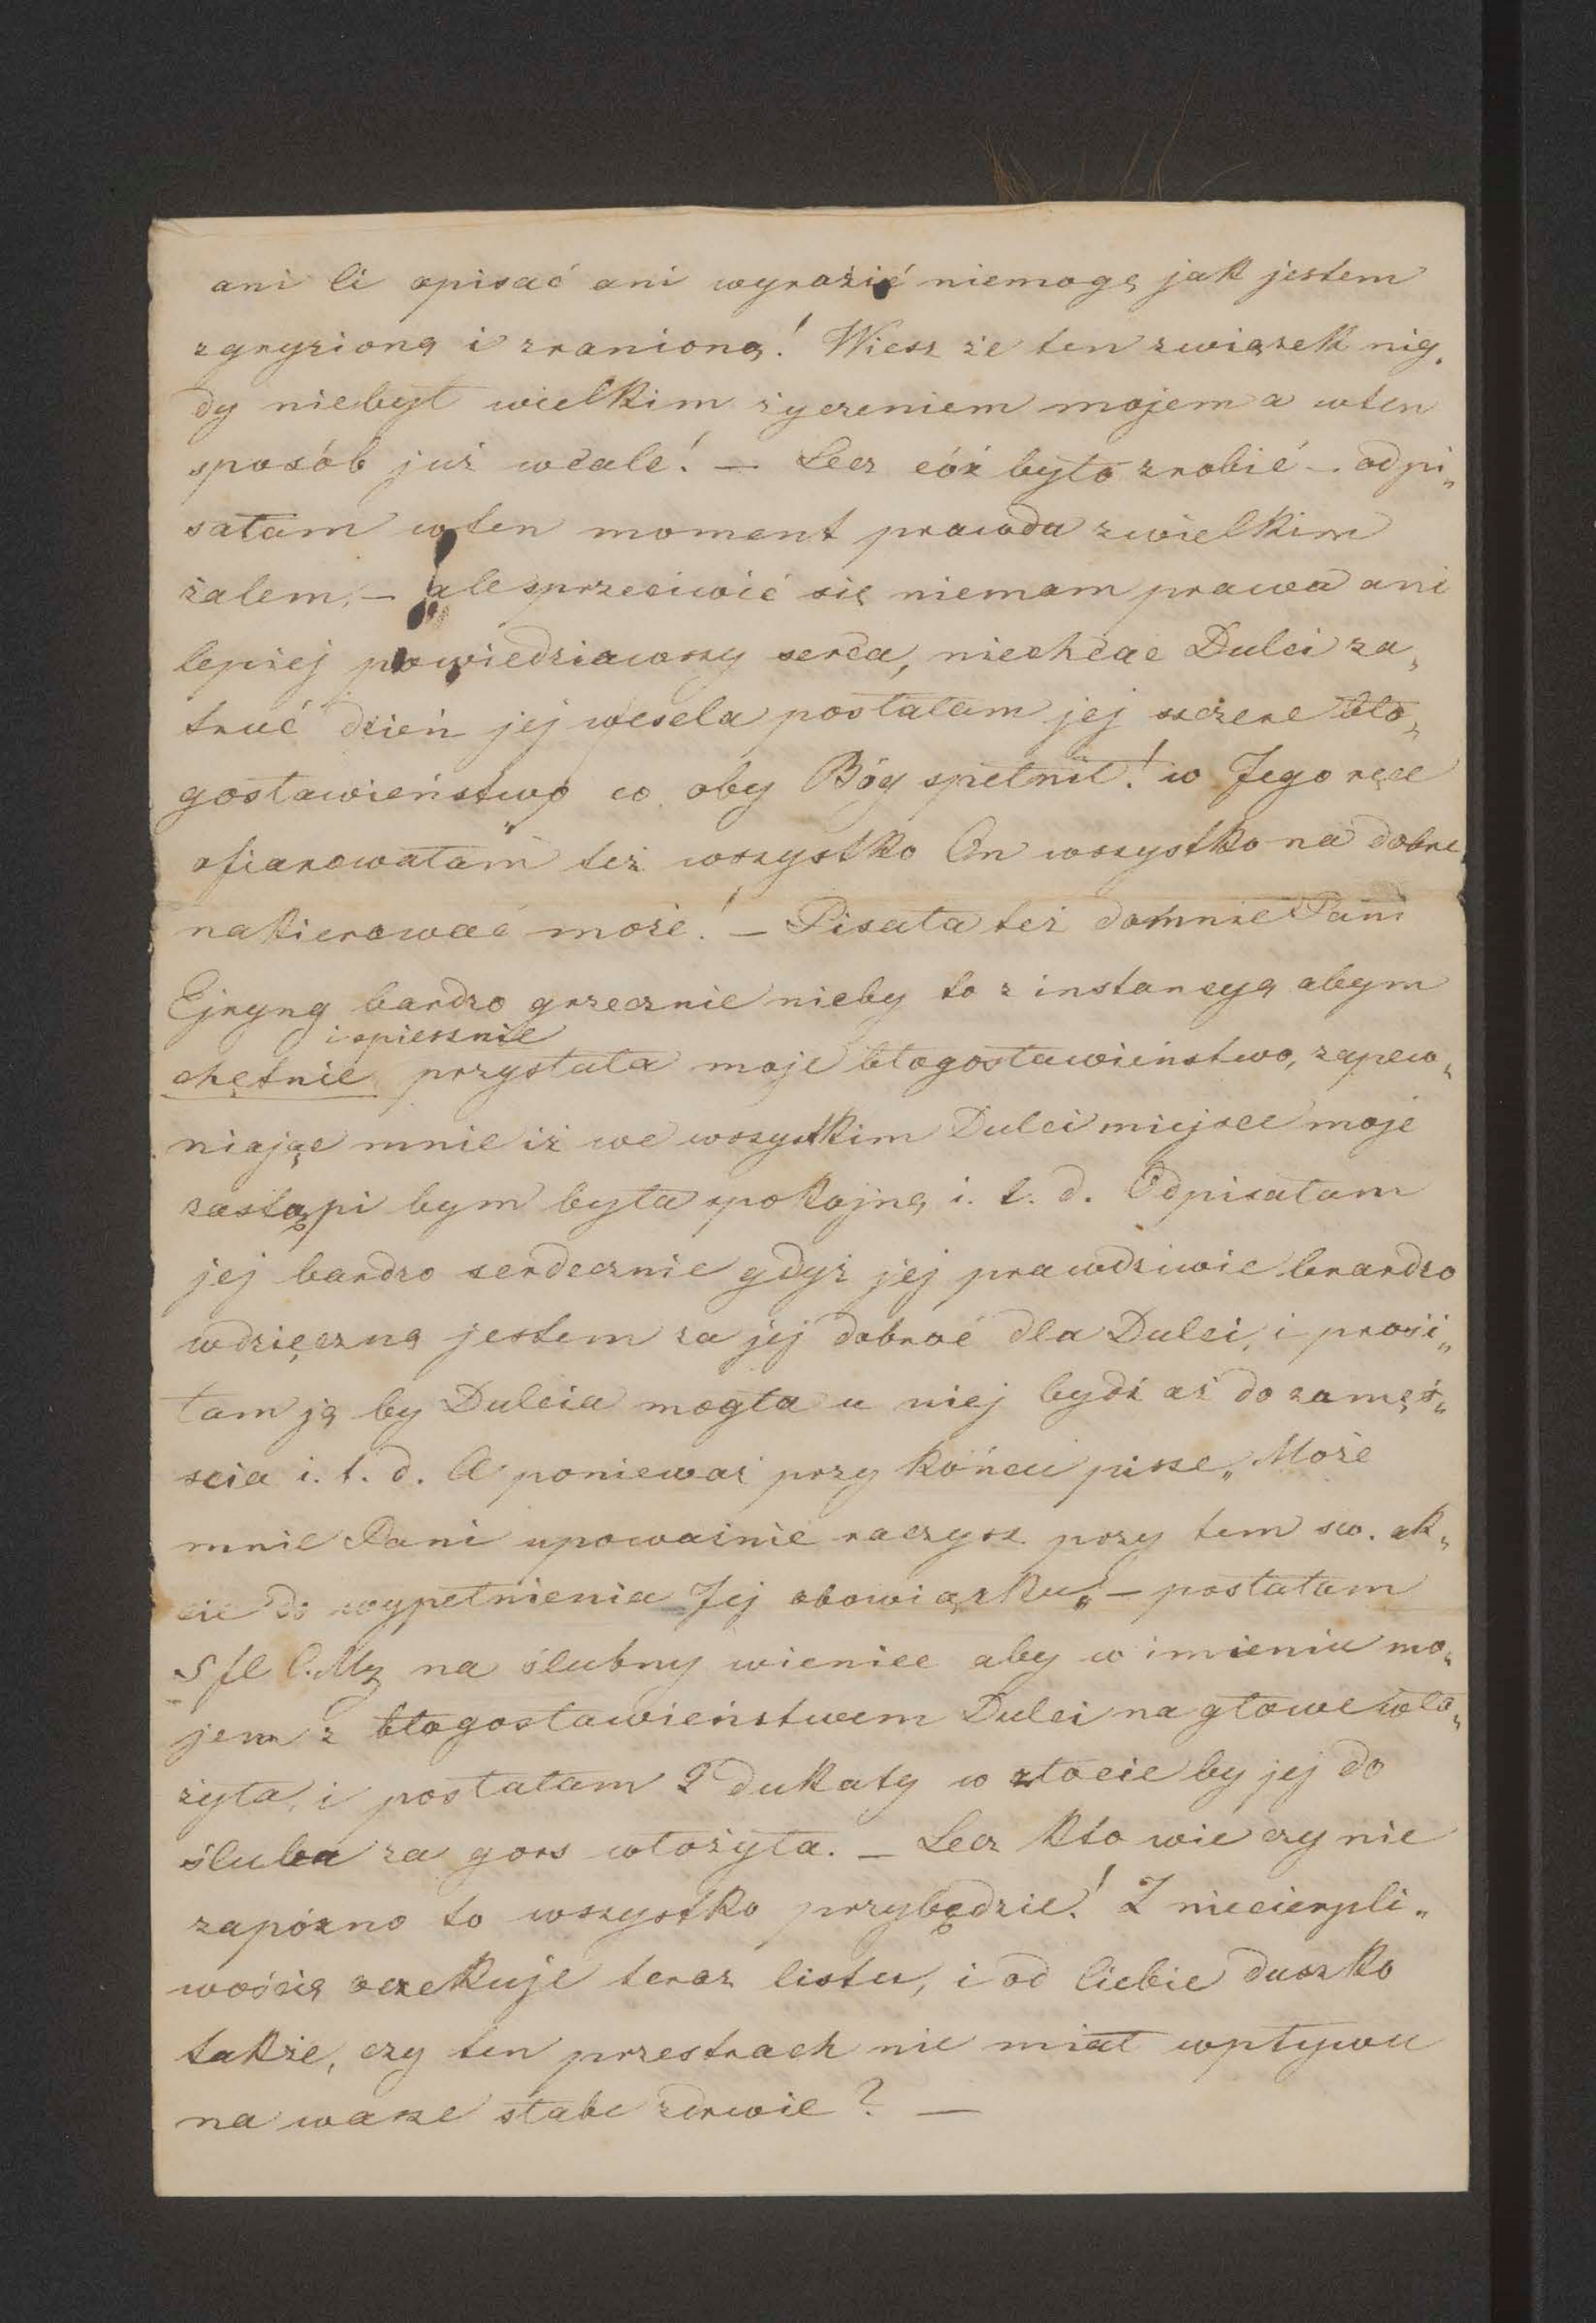 ani Ci opisać ani wyrazić niemogę jak jestem
zgryzioną i zranioną! Wiesz że ten związek nig„
dy niebył wielkim życzeniem mojem a wten
sposób już wcale! — Lecz cóż było zrobić — odpi„
sałam wten moment prawda zwielkim
żalem, — ale sprzeciwić się niemam prawa ani
lepiej powiedziawszy serca, niechcąc Dulci za„
truć dzień jej wesela posłałam jej szczere bło„
gosławieństwo co oby Bóg spełnił! w Jego ręce
ofiarowałam też wszystko On wszystko na dobre
nakierować może! — Pisała też domnie Pani
Ejryng bardzo grzecznie niby to z instancyą abym
i spiesznie
chętnie przysłała moje błogosławieństwo, zapew„
niając mnie iż we wszystkim Dulci miejsce moje
zastąpi bym była spokojną i. t. d. Odpisałam
jej bardzo serdecznie gdyż jej prawdziwie brardzo
wdzięczną jestem za jej dobroć dla Dulci, i prosi„
łam ją by Dulcia mogła u niej bydź aż do zamęś„
scia i. t. d. A ponieważ przy końcu pisze „Może
mnie Pani upoważnić raczysz przy tem sw. ak„
cie do wypełnienia Jej obowiązku„ — posłałam
5 fl C.Mz na ślubny wieniec aby w imieniu mo„
jem z błogosławieństwem Dulci na głowe wło„
żyła, i posłałam 2 dukaty w złocie by jej do
ślubu za gors włożyła. — Lecz kto wie czy nie
zapózno to wszystko przybędzie! Z niecierpli„
wością oczekuje teraz listu, i od Ciebie duszko
także, czy ten przestrach nie miał wpływu
na wasze słabe zdrwie? —